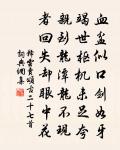 血盆似口劍如牙
竭世樞機未足夸
親到龍潭龍不現
者回失却眼中花
釋雲賁頌古二十七首
詞典網集